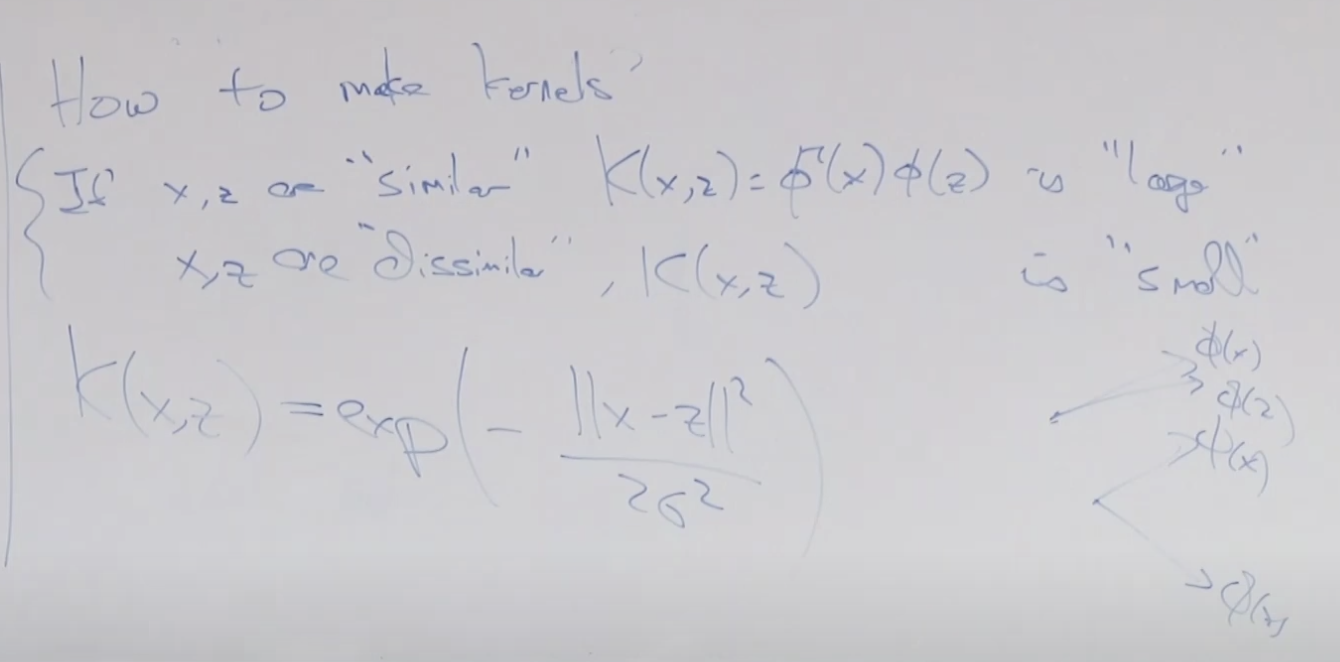 How to make kernels
If x,z are "similar" K(x,z) = φᵀ(x) φ(z) is "large"
x,z are "dissimilar", K(x,z) is "small"
K(x,z) = exp(- ||x-z||² / 2σ²)
φ(x)
φ(z)
φ(x)
φ(z)